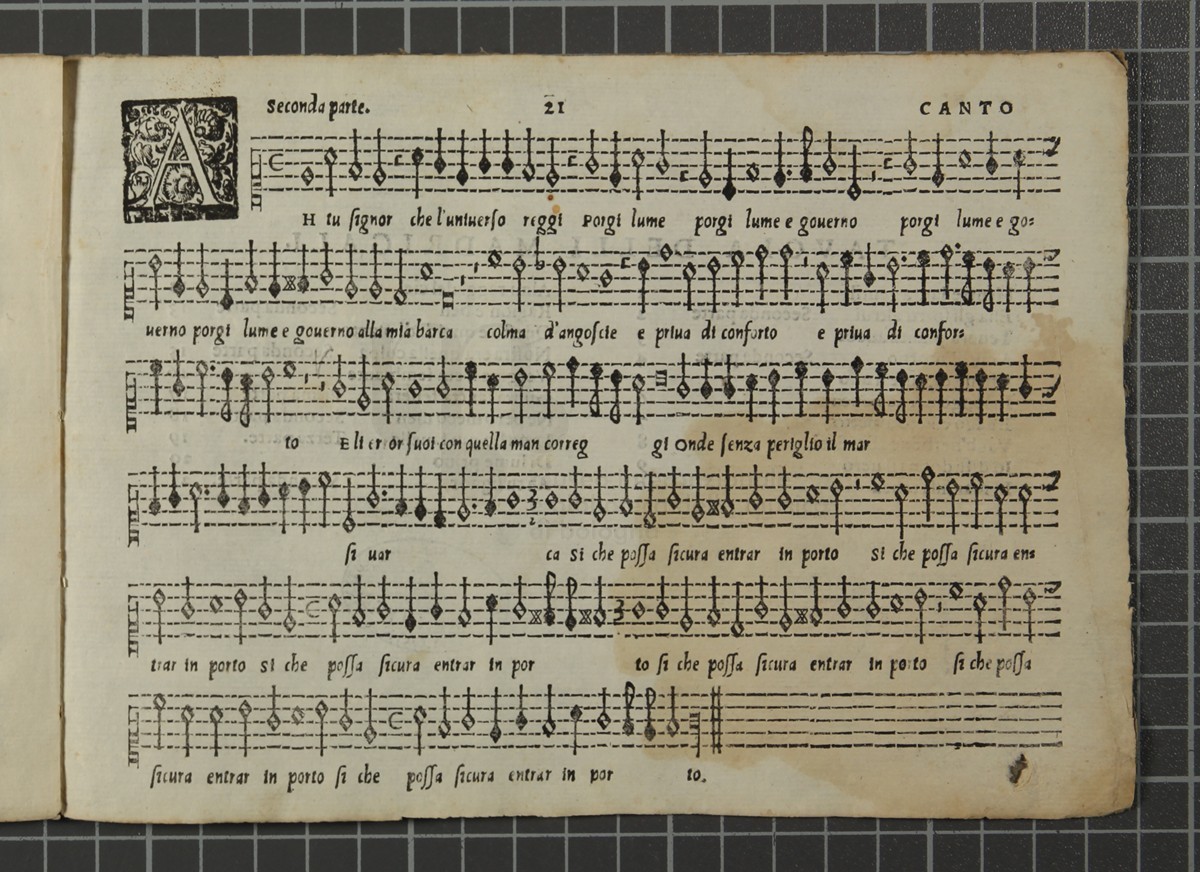 Seconda parte. 21 CANTO
AH tu ſignor che l'uniuerſo reggi Porgi lume porgi lume e gouerno porgi lume e go=
uerno porgi lume e gouerno alla mia barca colma d'angoſcie e priua di conforto e priua di confor=
to E li error ſuoi con quella man correg gi Onde ſenza periglio il mar
ſi uar ca Si che poſſa ſicura entrar in porto Si che poſſa ſicura en=
trar in porto Si che poſſa ſicura entrar in por to ſi che poſſa ſicura entrar in porto ſi che poſſa
ſicura entrar in porto ſi che poſſa ſicura entrar in por to.